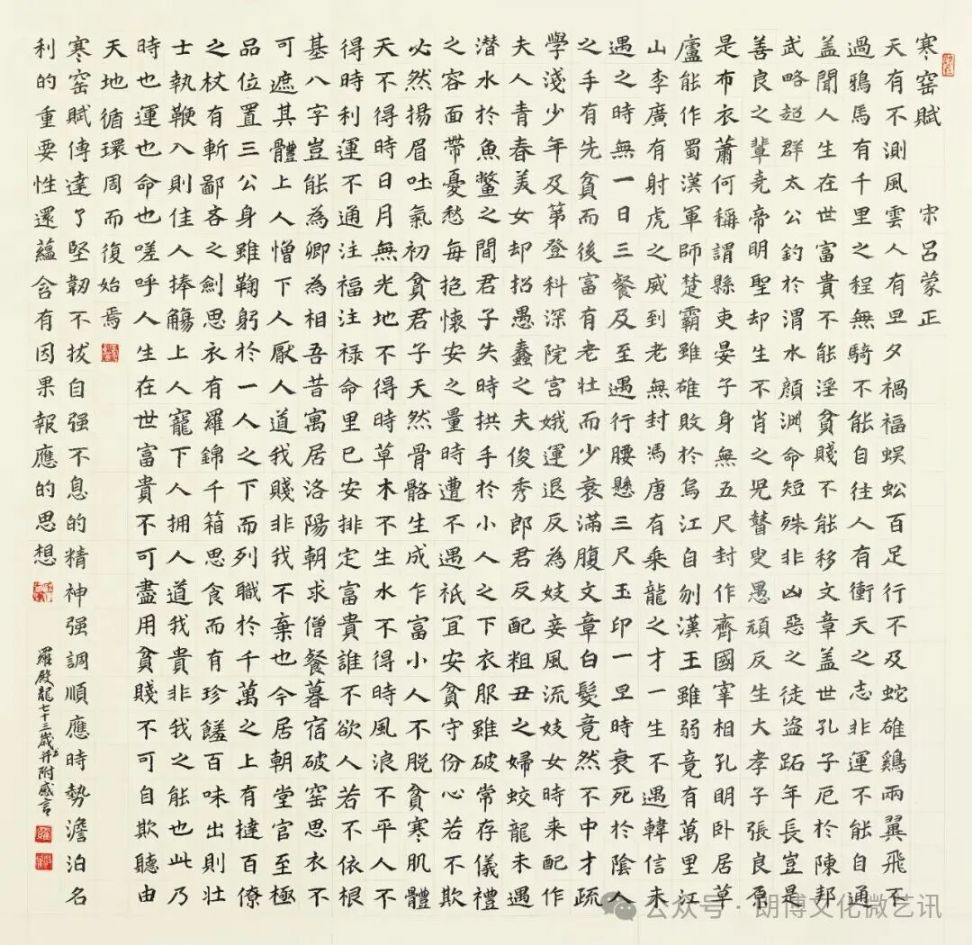 寒窑賦 宋呂蒙正
天有不測風雲人有旦夕禍福蜈蚣百足行不及蛇雄鷄兩翼飛不
過鴉馬有千里之程無騎不能自往人有衝天之志非運不能自通
盖聞人生在世富貴不能淫貧賤不能移文章盖世孔子厄於陳邦
武略超群太公釣於渭水顔渊命短殊非凶惡之徒盗跖年長豈是
善良之輩堯帝明聖却生不肖之兒瞽叟愚頑反生大孝子張良原
是布衣蕭何稱謂縣吏晏子身無五尺封作齊國宰相孔明卧居草
廬能作蜀漢軍師楚霸雖雄敗於烏江自刎漢王雖弱竟有萬里江
山李廣有射虎之威到老無封馮唐有乘龍之才一生不遇韓信未
遇之時無一日三餐及至遇行腰懸三尺玉印一旦時衰死於陰人
之手有先貧而後富有老壯而少衰滿腹文章白髮竟然不中才疏
學淺少年及第登科深院宮娥運退反為妓妾風流妓女時来配作
夫人青春美女却招愚蠢之夫俊秀郎君反配粗丑之婦蛟龍未遇
潜水於魚鱉之間君子失時拱手於小人之下衣服雖破常存儀禮
之容面帶憂愁每抱懷安之量時遭不遇祇宜安貧守份心若不欺
必然揚眉吐氣初貧君子天然骨骼生成乍富小人不脱貧寒肌體
天不得時日月無光地不得時草木不生水不得時風浪不平人不
得時利運不通注福注禄命里已安排定富貴誰不欲人若不依根
基八字豈能為卿為相吾昔寓居洛陽朝求僧餐暮宿破窑思衣不
可遮其體上人憎下人厭人道我賤非我不棄也今居朝堂官至極
品位置三公身雖鞠躬於一人之下而列職於千萬之上有撻百僚
之杖有斬鄙吝之劍思衣有羅錦千箱思食而有珍饈百味出則壯
士執鞭入則佳人捧觴上人寵下人拥人道我貴非我之能也此乃
時也運也命也嗟呼人生在世富貴不可盡用貧賤不可自欺聽由
天地循環周而復始焉
寒窑賦傳達了堅韌不拔自强不息的精神强調順應時勢澹泊名
利的重要性還蘊含有因果報應的思想
羅殿龍七十三歲并附感言
公众号 · 朗博文化微艺讯